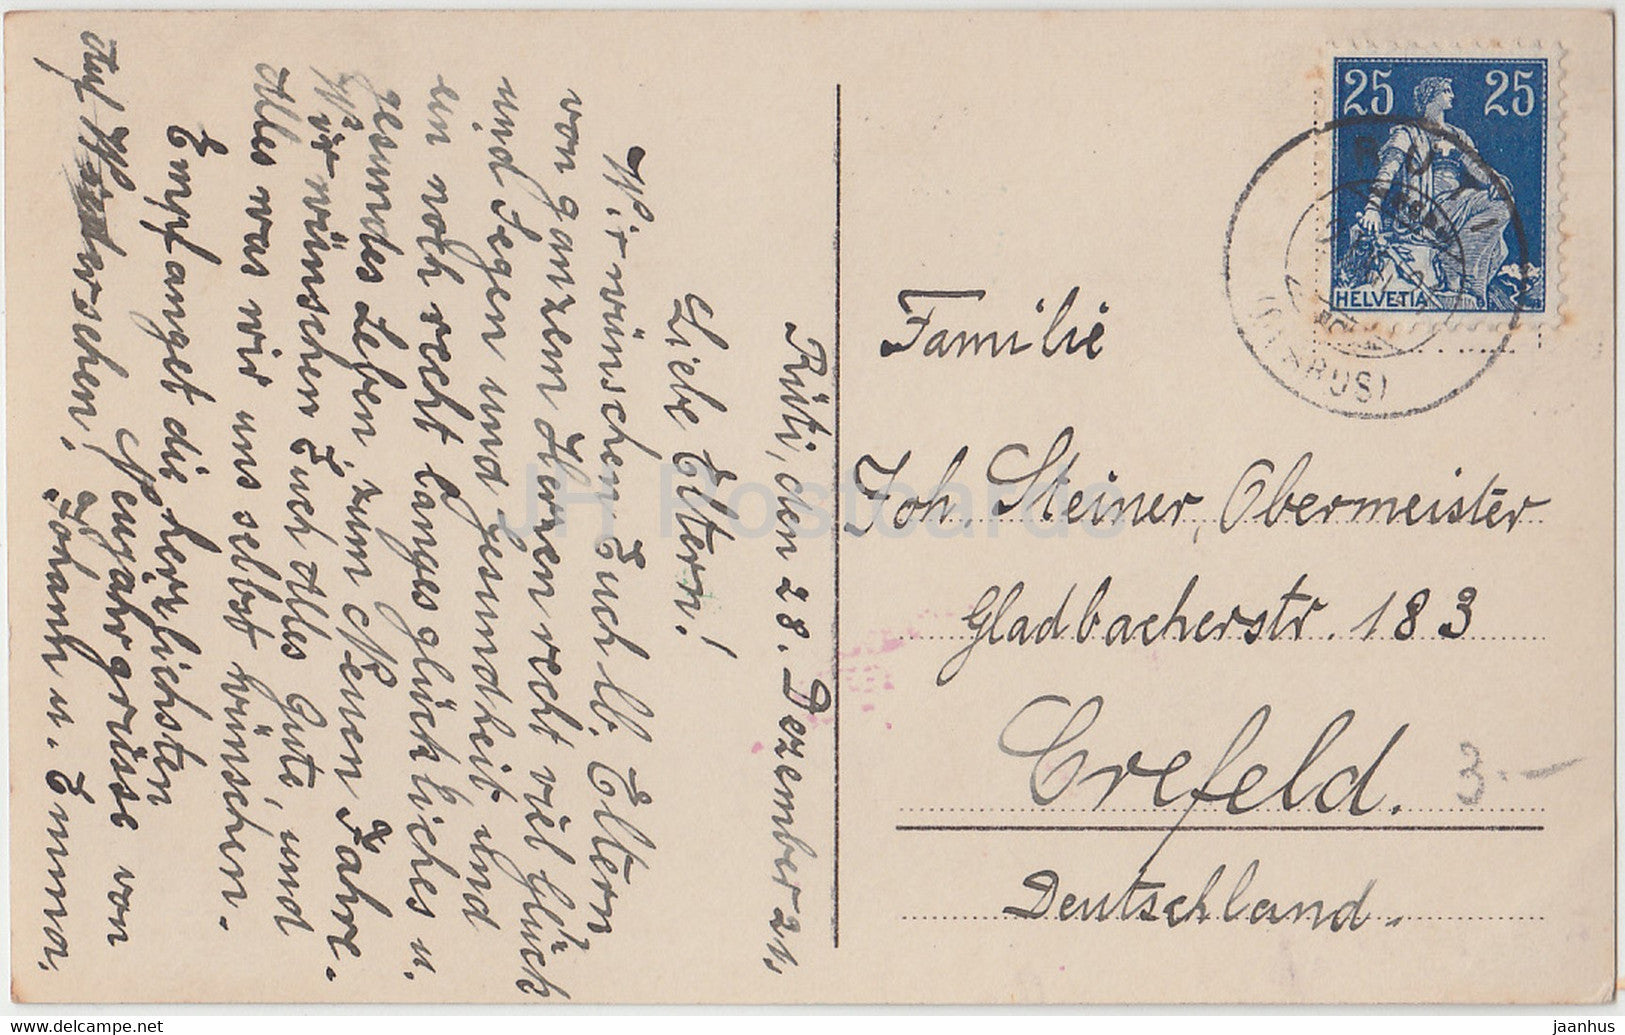 Rüti, den 28. Dezember 21.
Liebe Eltern!
Wir wünschen Euch lb. Eltern,
von ganzem Herzen recht viel Glück
und Segen und Gesundheit, und
en noch recht langes glückliches u.
gesundes Leben, zum Neuen Jahre.
Wir wünschen Euch Alles Gute, und
Alles was wir uns selbst wünschen.
Empfanget die herzlichsten
Neujahrgrüsse von
Johann u. Emma.
Auf Wiedersehen!
25 25
HELVETIA
RÜTI
(GLARUS)
Familie
Joh. Steiner, Obermeister
Gladbacherstr. 183
Crefeld.
Deutschland.
3.-
JH Postcards
www.delcampe.net
jaanhus